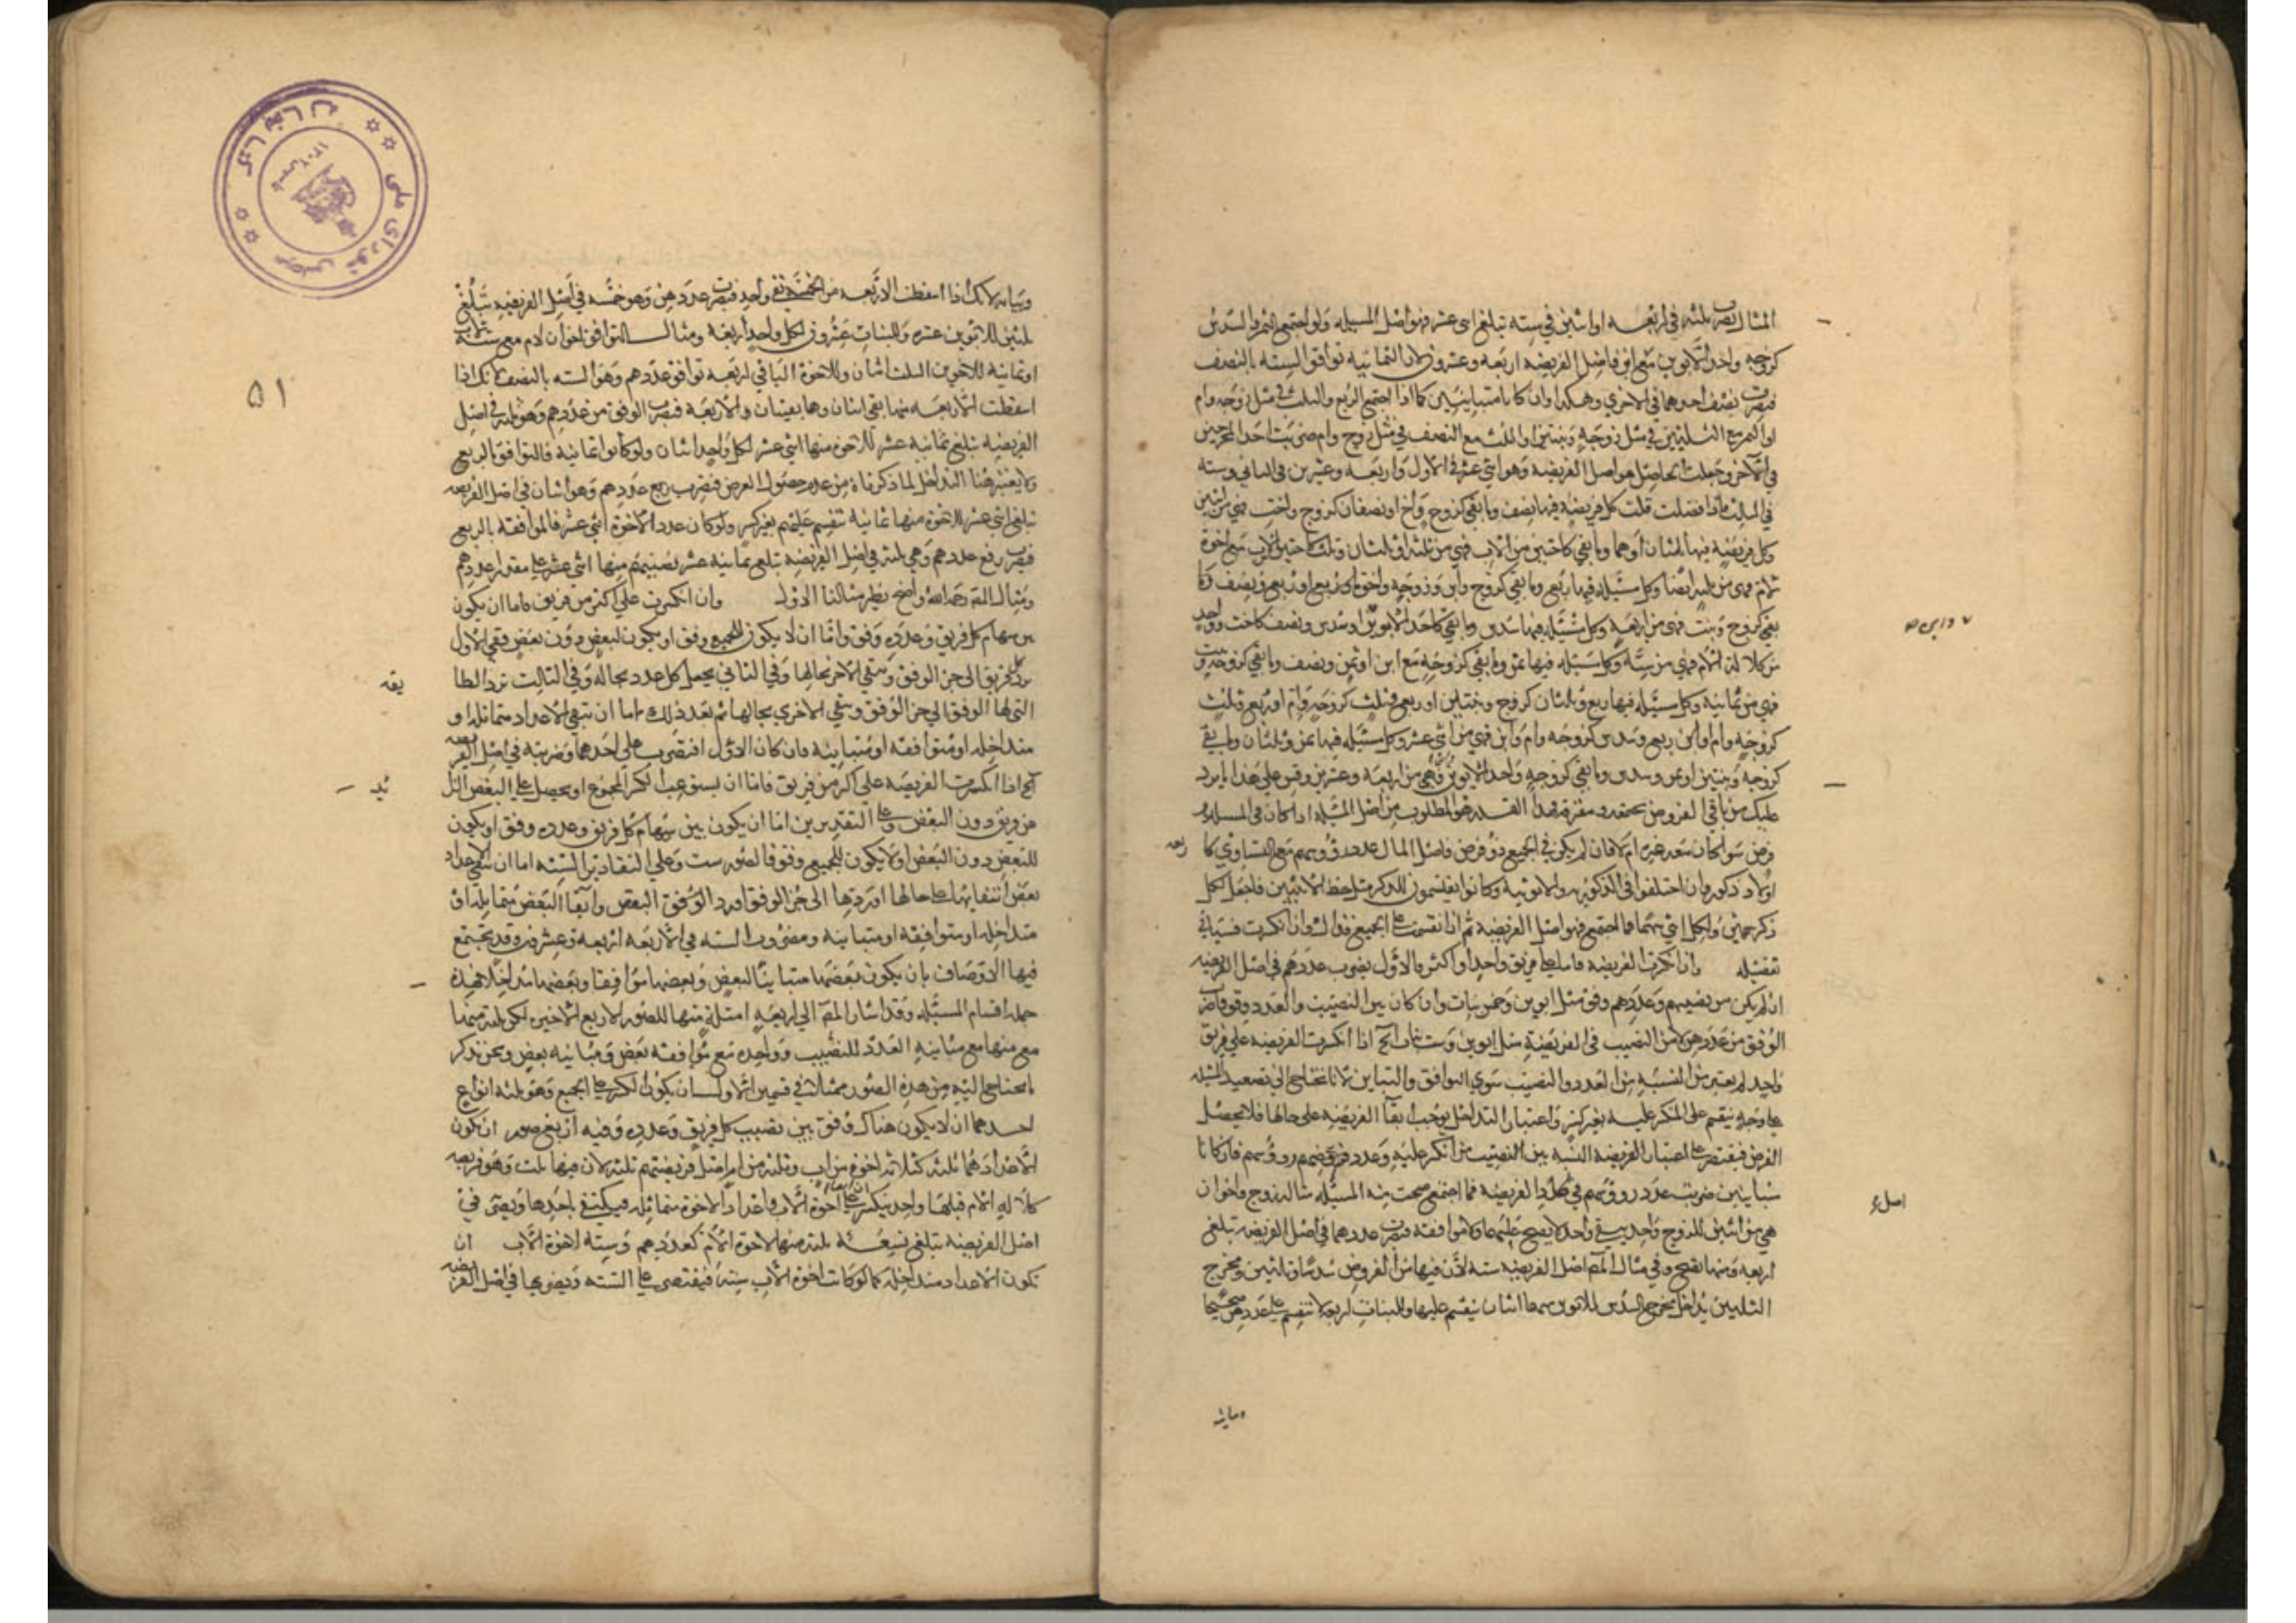 المثال يضرب ثلثه في اربعه او اثنين في سته تبلغ اثنى عشر فهو اصل المسيله ولو اجتمع الثمن والسدس
كزوجه واحد الابوين مع ابن فاصل الفريضه اربعه وعشرون لان الثمانيه توافق السته بالنصف
فيضرب نصف احدهما في الاخرى وهكذا وان كانا متباينين كما اذا اجتمع الربع والثلث في مثل زوجه وام
او الثمن مع الثلثين في مثل زوجه وبنتين او الثلث مع النصف في مثل زوج وام ضربت احد المخرجين
في الآخر وجعلت الحاصل هو اصل الفريضه وهو اثنى عشر في الاول واربعه وعشرين في الثاني وسته
في الثالث فاذا فصلت قلت كل فريضه فيها نصف وما بقي كزوج واخ او نصفان كزوج واخت فهي من اثنين
وكل فريضه فيها ثلثان او هما وما بقي كاختين من الاب فهي من ثلثه او ثلثان وثلث كاختين لاب مع اخوة
لام فهي من ثلثه ايضا وكل مسيله فيها ربع وما بقي كزوج وابن وزوجه واخ او ربع ونصف وما
بقي كزوج وبنت فهي من اربعه وكل مسيله فيها سدس وما بقي كاحد الابوين او سدس ونصف كاخت وواحد
من كلالة الام فهي من سته وكل مسيله فيها ثمن وما بقي كزوجه مع ابن او ثمن ونصف وما بقي كزوجه وبنت
فهي من ثمانيه وكل مسيله فيها ربع وثلثان كزوج وبنتين او ربع وثلث كزوجه وام او ربع وثلث
كزوجه وام او ابن ربع وسدس كزوجه وام وابن فهي من اثنى عشر وكل مسيله فيها ثمن وثلثان وما بقي
كزوجه وبنتين او ثمن وسدس وما بقي كزوجه واحد الابوين فهي من اربعه وعشرين وقس على هذا ما يرد
عليك من باقي الفروض مجتمعه ومفترقه وهذا القدر هو المطلوب من اصل المسيله اذا كان في المسيله
فرض سوا كان معه غيره ام لا فان لم يكن في الجميع ذو فرض فاصل المال عدد رؤسهم مع التساوي كا
اولاد ذكور وان اختلفوا في الذكوريه والانوثيه وكانوا يقتسمون للذكر مثل حظ الانثيين فاجعل لكل
ذكر سهمين ولكل انثى سهما فما اجتمع فهو اصل الفريضه ثم ان انقسمت على الجميع فذاك وان انكسرت فسياتي
تفصيله واذا انكسرت الفريضه فاما على فريق واحد او اكثر فالاول يضرب عددهم في اصل الفريضه
ان لم يكن بين نصيبهم وعددهم وفق مثل ابوين وخمس بنات وان كان بين النصيب والعدد وفق فاضرب
الوفق من عددهن لا من النصيب في الفريضة مثل ابوين وست بنات الخ اذا انكسرت الفريضه على فريق
واحد لم يعتبر من النسبه بين العدد والنصيب سوى التوافق والتباين لانا نحتاج الى تصعيد المسيله
على وجه ينقسم على المنكسر عليه بغير كسر واعتبار التداخل يوجب بقآ الفريضه على حالها فلا يحصل
الغرض فيقتصر على اعتبار الفريضه النسبه بين النصيب من انكسر عليه وعدد رؤسهم فان كانا
متباينين ضربت عدد رؤسهم في الفريضه فما اجتمع صحت منه المسيله مثاله زوج واخوان
هي من اثنين للزوج واحد يبقى واحد لا يصح عليهما ولا موافقه فتضرب عددهما في اصل الفريضه تبلغ
اربعه ومنها تصح وفي مثال المص اصل الفريضه سته لان فيها من الفروض سدسا وثلثين ومخرج
الثلثين يداخل مخرج السدس للابوين سهمان اثنان ينقسم عليها وللبنات اربعه لا تنقسم على عددهن صحيحا
اصل
وبيانه لانك اذا اسقطت الاربعه من الخمسه بقي واحد فيضرب عددهن وهو خمسه في اصل الفريضه تبلغ
ثلثين للابوين عشره وللبنات عشرون لكل واحد اربعه ومثال التوافق اخوان لام مع سته
او ثمانية للاخوين الثلث اثنان وللاخوة الباقي اربعه توافق عددهم وهو السته بالنصف لانك اذا
اسقطت الاربعه منها بقي اثنان وهما يعدان والاربعه فيضرب الوفق من عددهم وهو ثلثه في اصل
الفريضه تبلغ ثمانية عشر للاخوة منها اثنى عشر لكل واحد اثنان ولو كانوا ثمانية فالتوافق بالربع
ولا يعتبر هنا التداخل لما ذكرناه من عدم حصول الغرض فيضرب ربع عددهم وهو اثنان في اصل الفريضه
تبلغ اثنى عشر للاخوة منها ثمانية تنقسم عليهم بغير كسر ولو كان عدد الاخوة اثنى عشر فالموافقه بالربع
فيضرب ربع عددهم وهي ثلثه في اصل الفريضه تبلغ ثمانيه عشر نصيبهم منها اثنى عشر على مقدار عددهم
ومثال المص رحمه الله واضح نظير مثالنا الاول وان انكسرت على اكثر من فريق فاما ان يكون
بين سهام كل فريق وعدده وفق واما ان لا يكون للجميع وفق او يكون لبعض دون بعض ففي الاول
يرد كل فريق الى جزء الوفق وتبقى الاخر بحالها وفي الثاني يجعل كل عدد بحاله وفي الثالث ترد الطا
يفه
التي لها الوفق الى جزء الوفق وتبقى الاخرى بحالها ثم بعد ذلك اما ان تبقى الاعداد متماثله او
متداخله او متوافقه او متباينه فان كان الاول اقتصرت على احدهما وضربته في اصل الفريضه
الخ اذا انكسرت الفريضه على اكثر من فريق فاما ان يستوعب الكسر المجموع او يحصل على البعض الزا
ئد
من فريق دون البعض وعلى التقديرين اما ان يكون بين سهام كل فريق وعدده وفق او يكون
للبعض دون البعض او لا يكون للجميع وفق فالصور ست وعلى التقادير السته اما ان تبقى الاعداد
بعد ابقايها على حالها او ردها الى جزء الوفق او رد الوفق البعض وابقآ البعض متماثله او
متداخله او متوافقه او متباينه ومضروب السته في الاربعه اربعه وعشرون وقد تجتمع
فيها الاوصاف بان يكون بعضها مباينا لبعض وبعضها موافقا وبعضها مداخلا فهذه
جمله اقسام المسئله وقد اشار المص الى اربعه امثلة منها للصور الاربع الاخيره لكن ثلثه منها
مع منها مع مباينه العدد للنصيب وواحده مع موافقة بعض ومباينه بعض ونحن نذكر
ما يحتاج اليه من هذه الصور ممثلا في قسمين الاول ان يكون الكسر على الجميع وهو ثلثه انواع
احدهما ان لا يكون هناك وفق بين نصيب كل فريق وعدده وفيه اربع صور ان تكون
الاعداد متماثله كثلاثه اخوة من اب وثلثه من ام اصل فريضتهم ثلثه لان فيها ثلث وهو فريضه
كلالة الام فلها واحد ينكسر على اخوة الاب واعداد الاخوة متماثله فيكتفي باحدها ويضرب في
اصل الفريضه تبلغ تسعه ثلثه منها لاخوة الام كعددهم وسته لاخوة الاب ان
تكون الاعداد متداخله كما لو كانت اخوة الاب سته فيقتصر على السته ويضربها في اصل الفريضه
۵۱